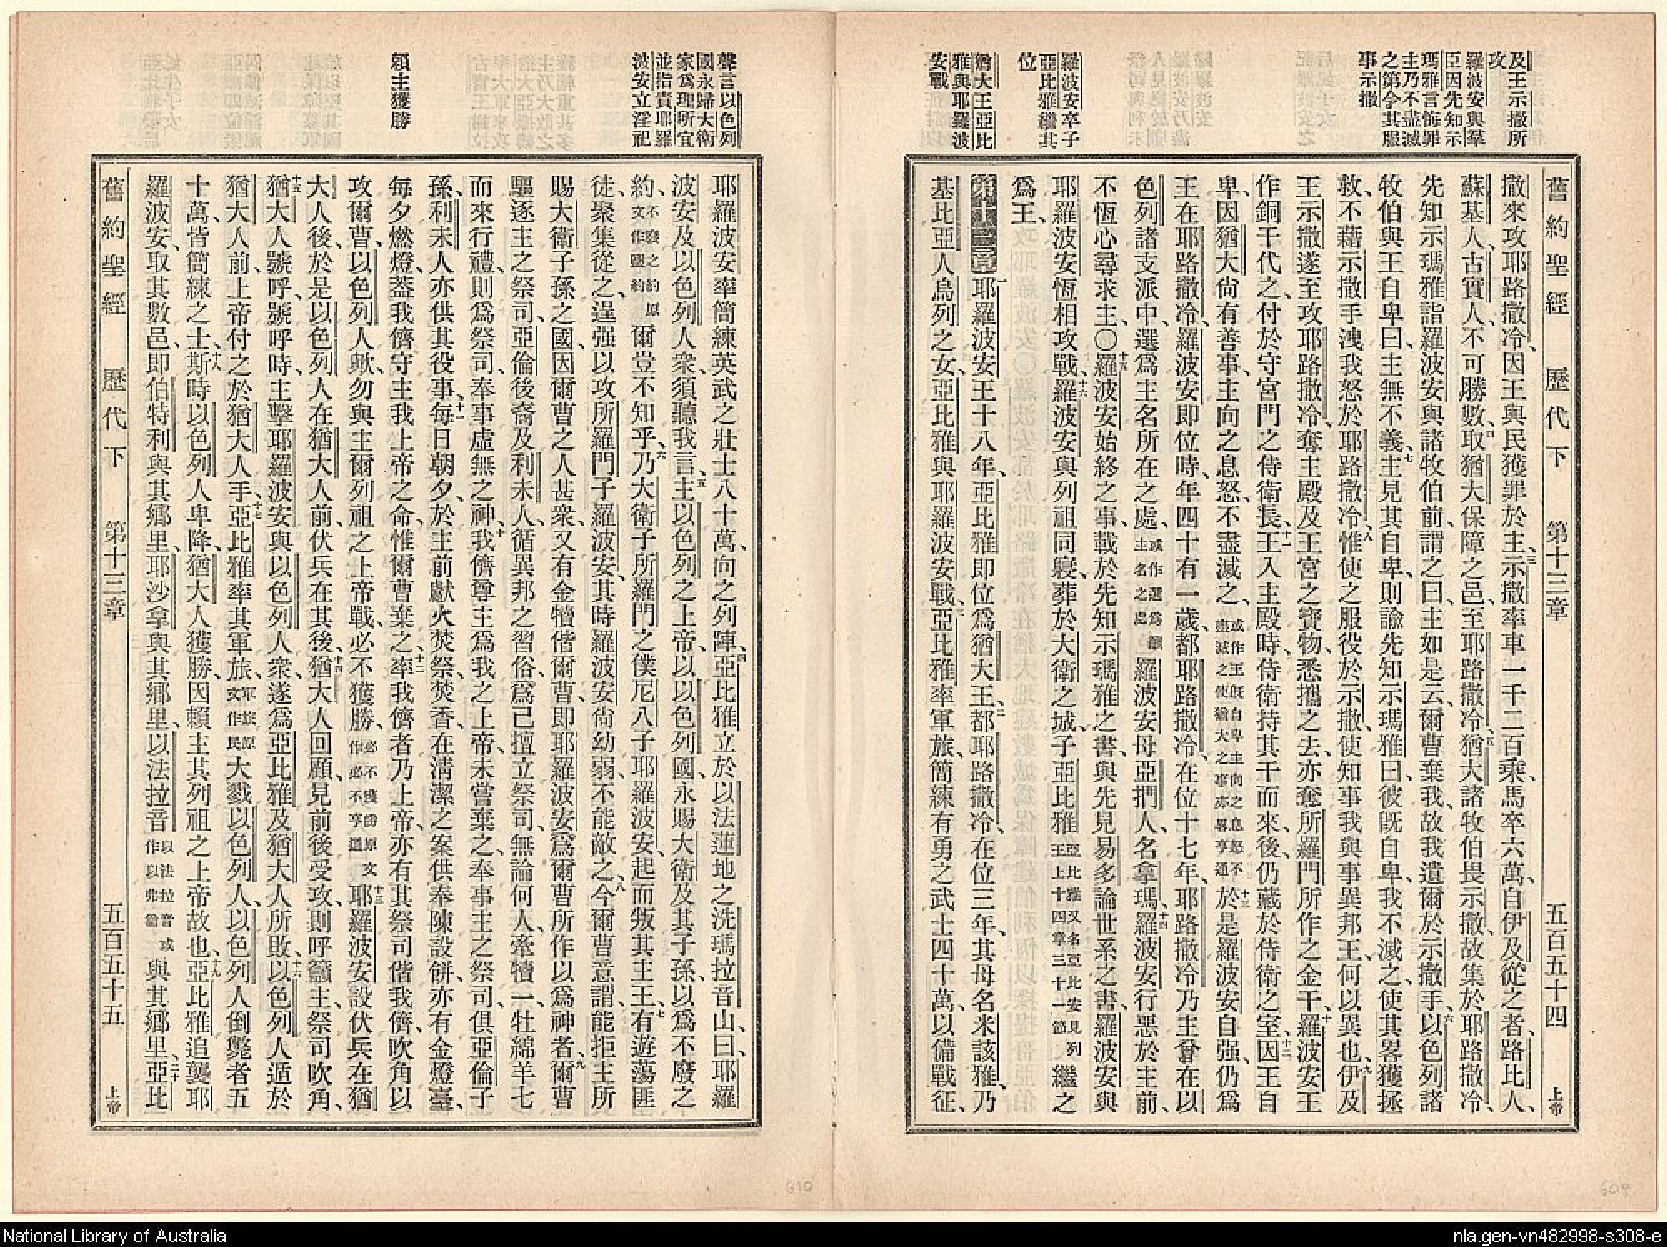 舊約聖經 歷代下 第十三章 五百五十四 上帝
及王示撒所
攻
羅波安與羣
臣因先知示
瑪雅言悔罪
主乃不盡滅
之第令其服
事示撒
羅波安卒子
亞比雅繼其
位
猶大王亞比
雅與耶羅波
安戰
撒來攻耶路撒冷、因王與民獲罪於主、三示撒率車一千二百乘、馬卒六萬、自伊及從之者、路比人、
蘇基人、古實人、不可勝數、四取猶大保障之邑、至耶路撒冷、五猶大諸牧伯畏示撒、故集於耶路撒冷、
先知示瑪雅詣羅波安與諸牧伯前、謂之曰、主如是云、爾曹棄我、故我遺爾於示撒手、六以色列諸
牧伯與王自卑曰、主無不義、七主見其自卑、則諭先知示瑪雅曰、彼旣自卑、我不滅之、使其畧獲拯
救、不藉示撒手洩我怒於耶路撒冷、八惟使之服役於示撒、使知事我與事異邦王、何以異也、九伊及
王示撒遂至攻耶路撒冷、奪主殿及王宮之寶物、悉攜之去、亦奪所羅門所作之金干、十羅波安王
作銅干代之、付於守宮門之侍衛長、十一王入主殿時、侍衛持其干而來、後仍藏於侍衛之室、十二因王自
卑、因猶大尙有善事、主向之息怒、不盡滅之、或作王旣自卑主向之息怒不盡滅之使猶大之事亦畧亨通 十三於是羅波安自强、仍爲
王在耶路撒冷、羅波安卽位時、年四十有一歲、都耶路撒冷、在位十七年、耶路撒冷乃主曾在以
色列諸支派中、選爲主名所在之處、或作選爲歸主名之處 羅波安母亞捫人、名拿瑪、十四羅波安行惡於主前、
不恆心尋求主、〇十五羅波安始終之事、載於先知示瑪雅之書、與先見易多論世系之書、羅波安與
耶羅波安恆相攻戰、十六羅波安與列祖同寢、葬於大衛之城、子亞比雅亞比雅又名亞比安見列王上十四章三十一節 繼之
爲王、
第十三章 一耶羅波安王十八年、亞比雅卽位爲猶大王、二都耶路撒冷、在位三年、其母名米該雅、乃
基比亞人烏列之女、亞比雅與耶羅波安戰、三亞比雅率軍旅、簡練有勇之武士四十萬、以備戰征、
聲言以色列
國永歸大衛
家爲理所宜
並指責耶羅
波安立淫祀
賴主獲勝
耶羅波安率簡練英武之壯士八十萬、向之列陣、四亞比雅立於以法蓮地之洗瑪拉音山、曰、耶羅
波安及以色列人衆、須聽我言、五主以色列之上帝、以以色列國、永賜大衛及其子孫、以爲不廢之
約、不廢之約原文作鹽約 爾豈不知乎、六乃大衛子所羅門之僕、尼八子耶羅波安、起而叛其主、七王有遊蕩匪
徒、聚集從之、逞强以攻所羅門子羅波安、其時羅波安尙幼弱、不能敵之、八今爾曹意謂能拒主所
賜大衛子孫之國、因爾曹之人甚衆、又有金犢偕爾曹、卽耶羅波安爲爾曹所作以爲神者、九爾曹
驅逐主之祭司亞倫後裔、及利未人、循異邦之習俗、爲己擅立祭司、無論何人、牽犢一、牡綿羊七
而來行禮、則爲祭司、奉事虛無之神、十我儕尊主爲我之上帝、未嘗棄之、奉事主之祭司、俱亞倫子
孫、利未人亦供其役事、十一每日朝夕、於主前獻火焚祭、焚香、在淸潔之案供奉陳設餅、亦有金燈臺、
每夕燃燈、蓋我儕守主我上帝之命、惟爾曹棄之、十二率我儕者乃上帝、亦有其祭司偕我儕、吹角以
攻爾曹、以色列人歟、勿與主爾列祖之上帝戰、必不獲勝、必不獲勝原文作必不亨通 十三耶羅波安設伏兵在猶
大人後、於是以色列人在猶大人前、伏兵在其後、十四猶大人回顧、見前後受攻、則呼籲主、祭司吹角、
十五猶大人號呼、號呼時、主擊耶羅波安與以色列人衆、遂爲亞比雅及猶大人所敗、十六以色列人遁於
猶大人前、上帝付之於猶大人手、十七亞比雅率其軍旅、軍旅原文作民 大戮以色列人、以色列人倒斃者五
十萬、皆簡練之士、十八斯時以色列人卑降、猶大人獲勝、因賴主其列祖之上帝故也、十九亞比雅追襲耶
羅波安、取其數邑、卽伯特利與其鄉里、耶沙拿與其鄉里、以法拉音以法拉音或作以弗倫 與其鄉里、二十亞比
舊約聖經 歷代下 第十三章 五百五十五 上帝
610
609
National Library of Australia
nla.gen-vn482998-s308-e